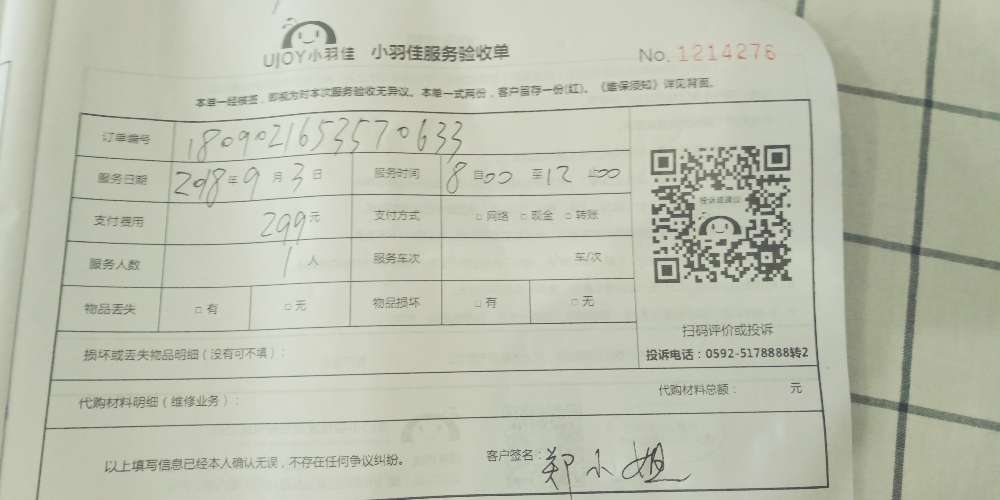 UJOY小羽佳 小羽佳服务验收单 No. 1214276
本单一经核签，即视为对本次服务验收无异议。本单一式两份，客户留存一份(红)。《维保须知》详见背面。
订单编号 1809021653570633
服务日期 2018年9月3日 服务时间 8自00至12止00
支付费用 299元 支付方式 □网络 □现金 □转账
服务人数 1人 服务车次 车/次
物品丢失 □有 □无 物品损坏 □有 □无
投诉或建议
扫码评价或投诉
投诉电话：0592-5178888转2
损坏或丢失物品明细（没有可不填）：
代购材料明细（维修业务）： 代购材料总额： 元
以上填写信息已经本人确认无误，不存在任何争议纠纷。 客户签名：郑小姐